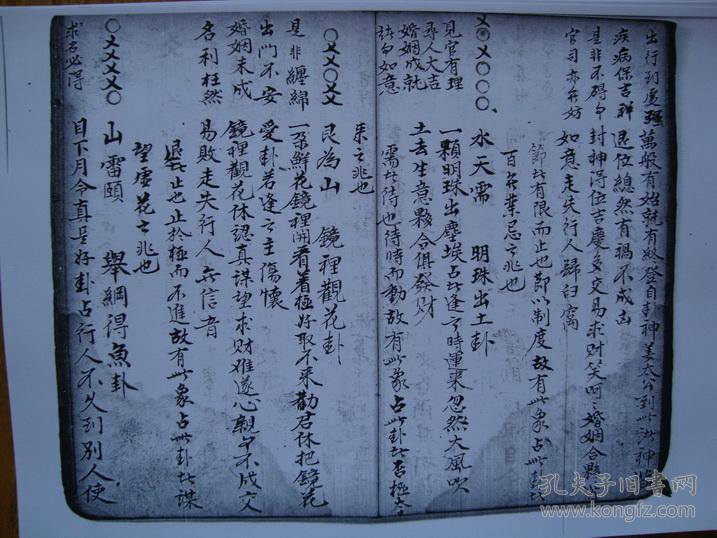 出行到處強
疾病保吉祥
是非不碍
官司亦好
萬般有始就有終登自封神姜太公到此諸神
退位總然有禍不成凶
封神得位吉慶多交易求財笑呵呵婚姻合夥
如意走失行人歸自窩
節者有限而止也節以制度故有此象占此卦者
百無業忌之兆也
〇〇〇
水天需 明珠出土卦
見官有理
尋人大吉
婚姻成就
謀句如意
一顆明珠出塵埃占者逢之時運來忽然大風吹
土去生意夥合俱發財
需者待也待時而動故有此象占此卦者否極
來之兆也
〇乂乂〇乂乂
艮為山 鏡裡觀花卦
是非纏綿
出門不安
婚姻未成
名利枉然
一朶鮮花鏡裡開看着極好取不來勸君休把鏡花
愛卦若逢之主傷懷
鏡裡觀花休認真謀望求財难遂心親事不成交
易敗走失行人無信音
艮者止也止於極而不進故有此象占此卦者謀
望虛花之兆也
〇乂乂乂乂〇
山雷頤 舉綱得魚卦
求名必得
目下月令真是好卦占行人不久到別人使
孔夫子旧书网
kongfz.com